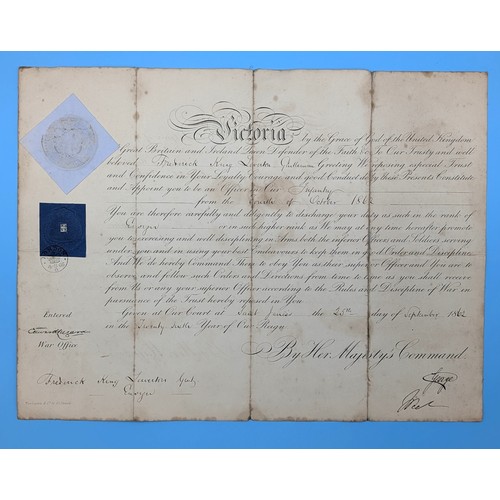 Victoria by the Grace of God of the United Kingdom
of Great Britain and Ireland Queen Defender of the Faith &c. To Our Trusty and well
beloved Frederick Gentleman Greeting We reposing especial Trust
and Confidence in Your Loyalty Courage and good Conduct do by these Presents Constitute
and Appoint you to be an Officer in Our Infantry
from the of October 186
You are therefore carefully and diligently to discharge your duty as such in the rank of
or in such higher rank as We may at any time hereafter promote
you to exercising and well disciplining in Arms both the inferior Officers and Soldiers serving
under you and in using your best Endeavours to keep them in good Order and Discipline
And We do hereby Command Them to obey You as their superior Officer and You are to
observe and follow such Orders and Directions from time to time as you shall receive
from Us or any your superior Officer according to the Rules and Discipline of War in
pursuance of the Trust hereby reposed in You
Given at Our Court at Saint James's the 25th day of September 1862
in the Twenty sixth Year of Our Reign
By Her Majesty's Command.
Entered
War Office
Frederick Gent
George